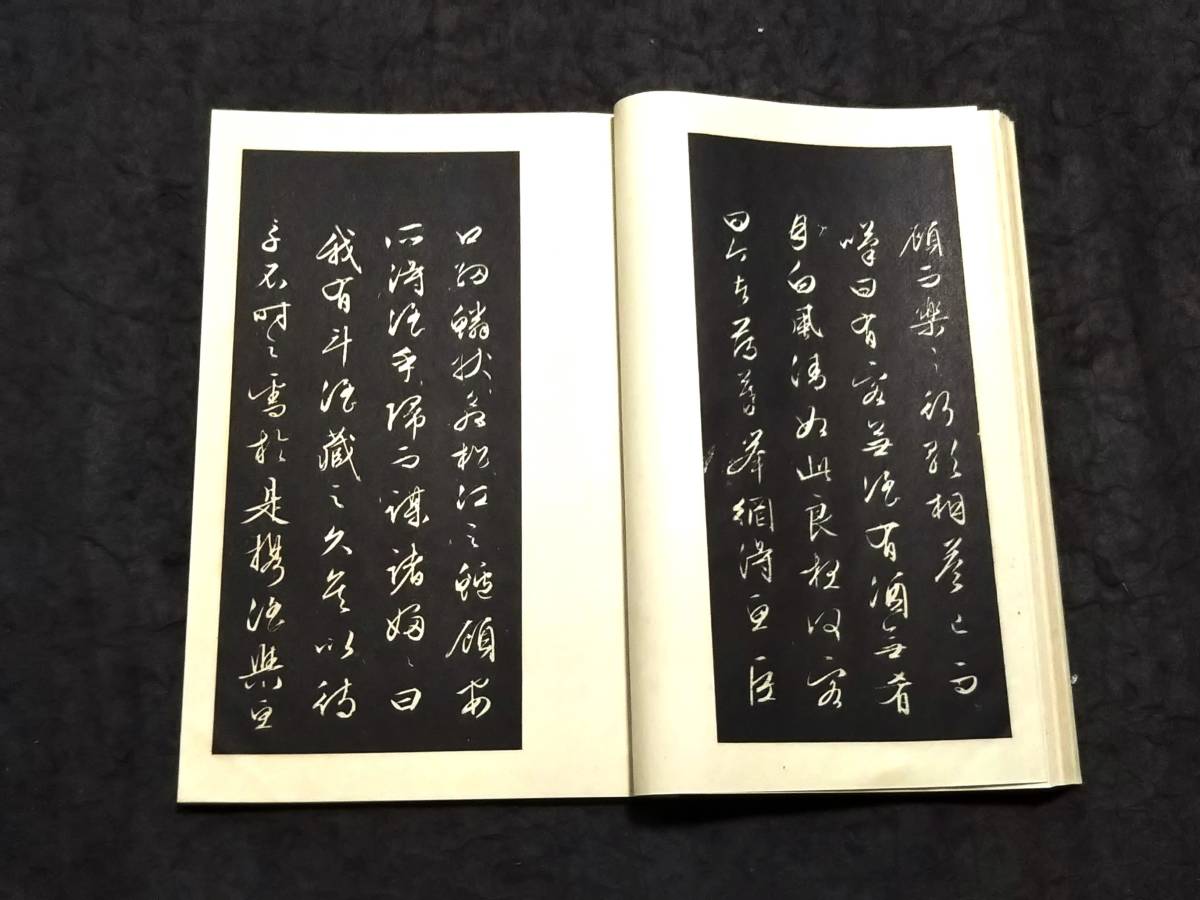 顧而樂之行歌相答已而
嘆曰有客無酒有酒無肴
月白風清如此良夜何客
曰今者薄暮舉網得魚巨
口細鱗狀似松江之鱸顧安
所得酒乎歸而謀諸婦〻曰
我有斗酒藏之久矣以待
子不時之需於是攜酒與魚